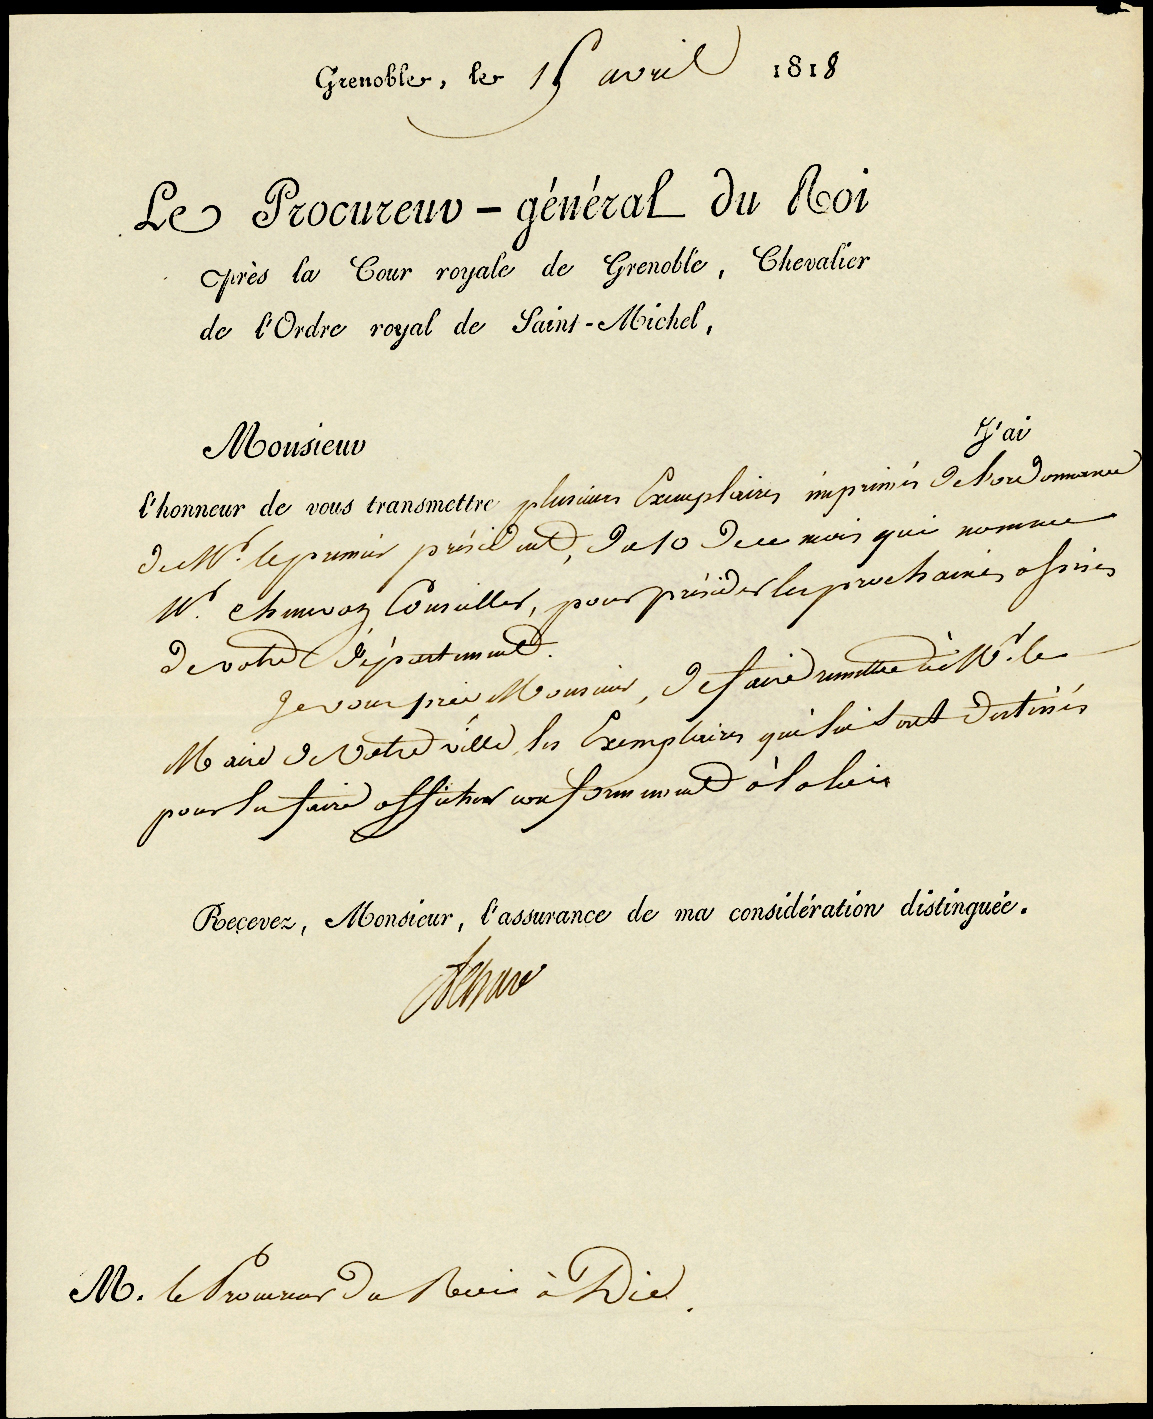 Grenoble, le 15 avril 1818
Le Procureur-général du Roi
près la Cour royale de Grenoble, Chevalier
de l'Ordre royal de Saint-Michel,
Monsieur J'ai
l'honneur de vous transmettre plusieurs Exemplaires imprimés de l'ordonnance
de Mr. le premier président, du 10 de ce mois qui nomme
Mr. Conseiller, pour présider les prochaines assises
de votre Département.
Je vous prie Monsieur, de faire remettre à Mr. le
Maire de Votre ville les Exemplaires qui lui sont destinés
pour les faire afficher conformement à la loi
Recevez, Monsieur, l'assurance de ma considération distinguée.
M. le Procureur du Roi à Die.